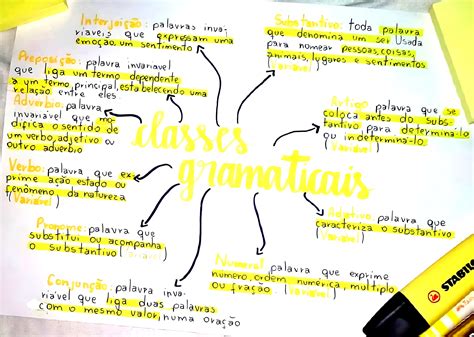 Interjeição: palavras inva-
riáveis que expressam uma
emoção, um sentimento
Substantivo: toda palavra
que denomina um ser. Usada
para nomear pessoas, coisas,
animais, lugares e sentimentos
(variável)
Preposição: palavra invariável
que liga um termo dependente
a um termo principal, estabelecendo uma
relação entre eles.
Artigo: palavra que se
coloca antes do subs-
tantivo para determiná-lo
ou indeterminá-lo
(variável)
Advérbio: palavra
invariável que mo-
difica o sentido de
um verbo, adjetivo ou
outro advérbio
classes
gramaticais
Verbo: palavra que ex-
prime ação estado ou
fenômeno, da natureza
(variável)
Adjetivo: palavra que
caracteriza o substantivo
(variável)
Pronome: palavra que
substitui ou acompanha
o substantivo (variável)
Numeral: palavra que exprime
número, ordem numérica, múltiplo
ou fração. (variável)
Conjunção: palavra inva-
riável que liga duas palavras
com o mesmo valor, numa oração
STABILO